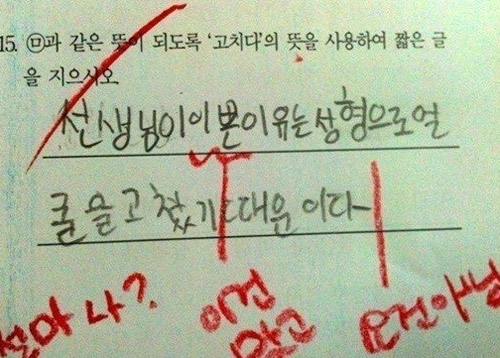 15. ㉤과 같은 뜻이 되도록 '고치다'의 뜻을 사용하여 짧은 글
을 지으시오
선생님이 이쁜이유는 성형으로 얼
굴을 고쳤기 때문 이다
설마 나?. 이건 맞고 요건아님